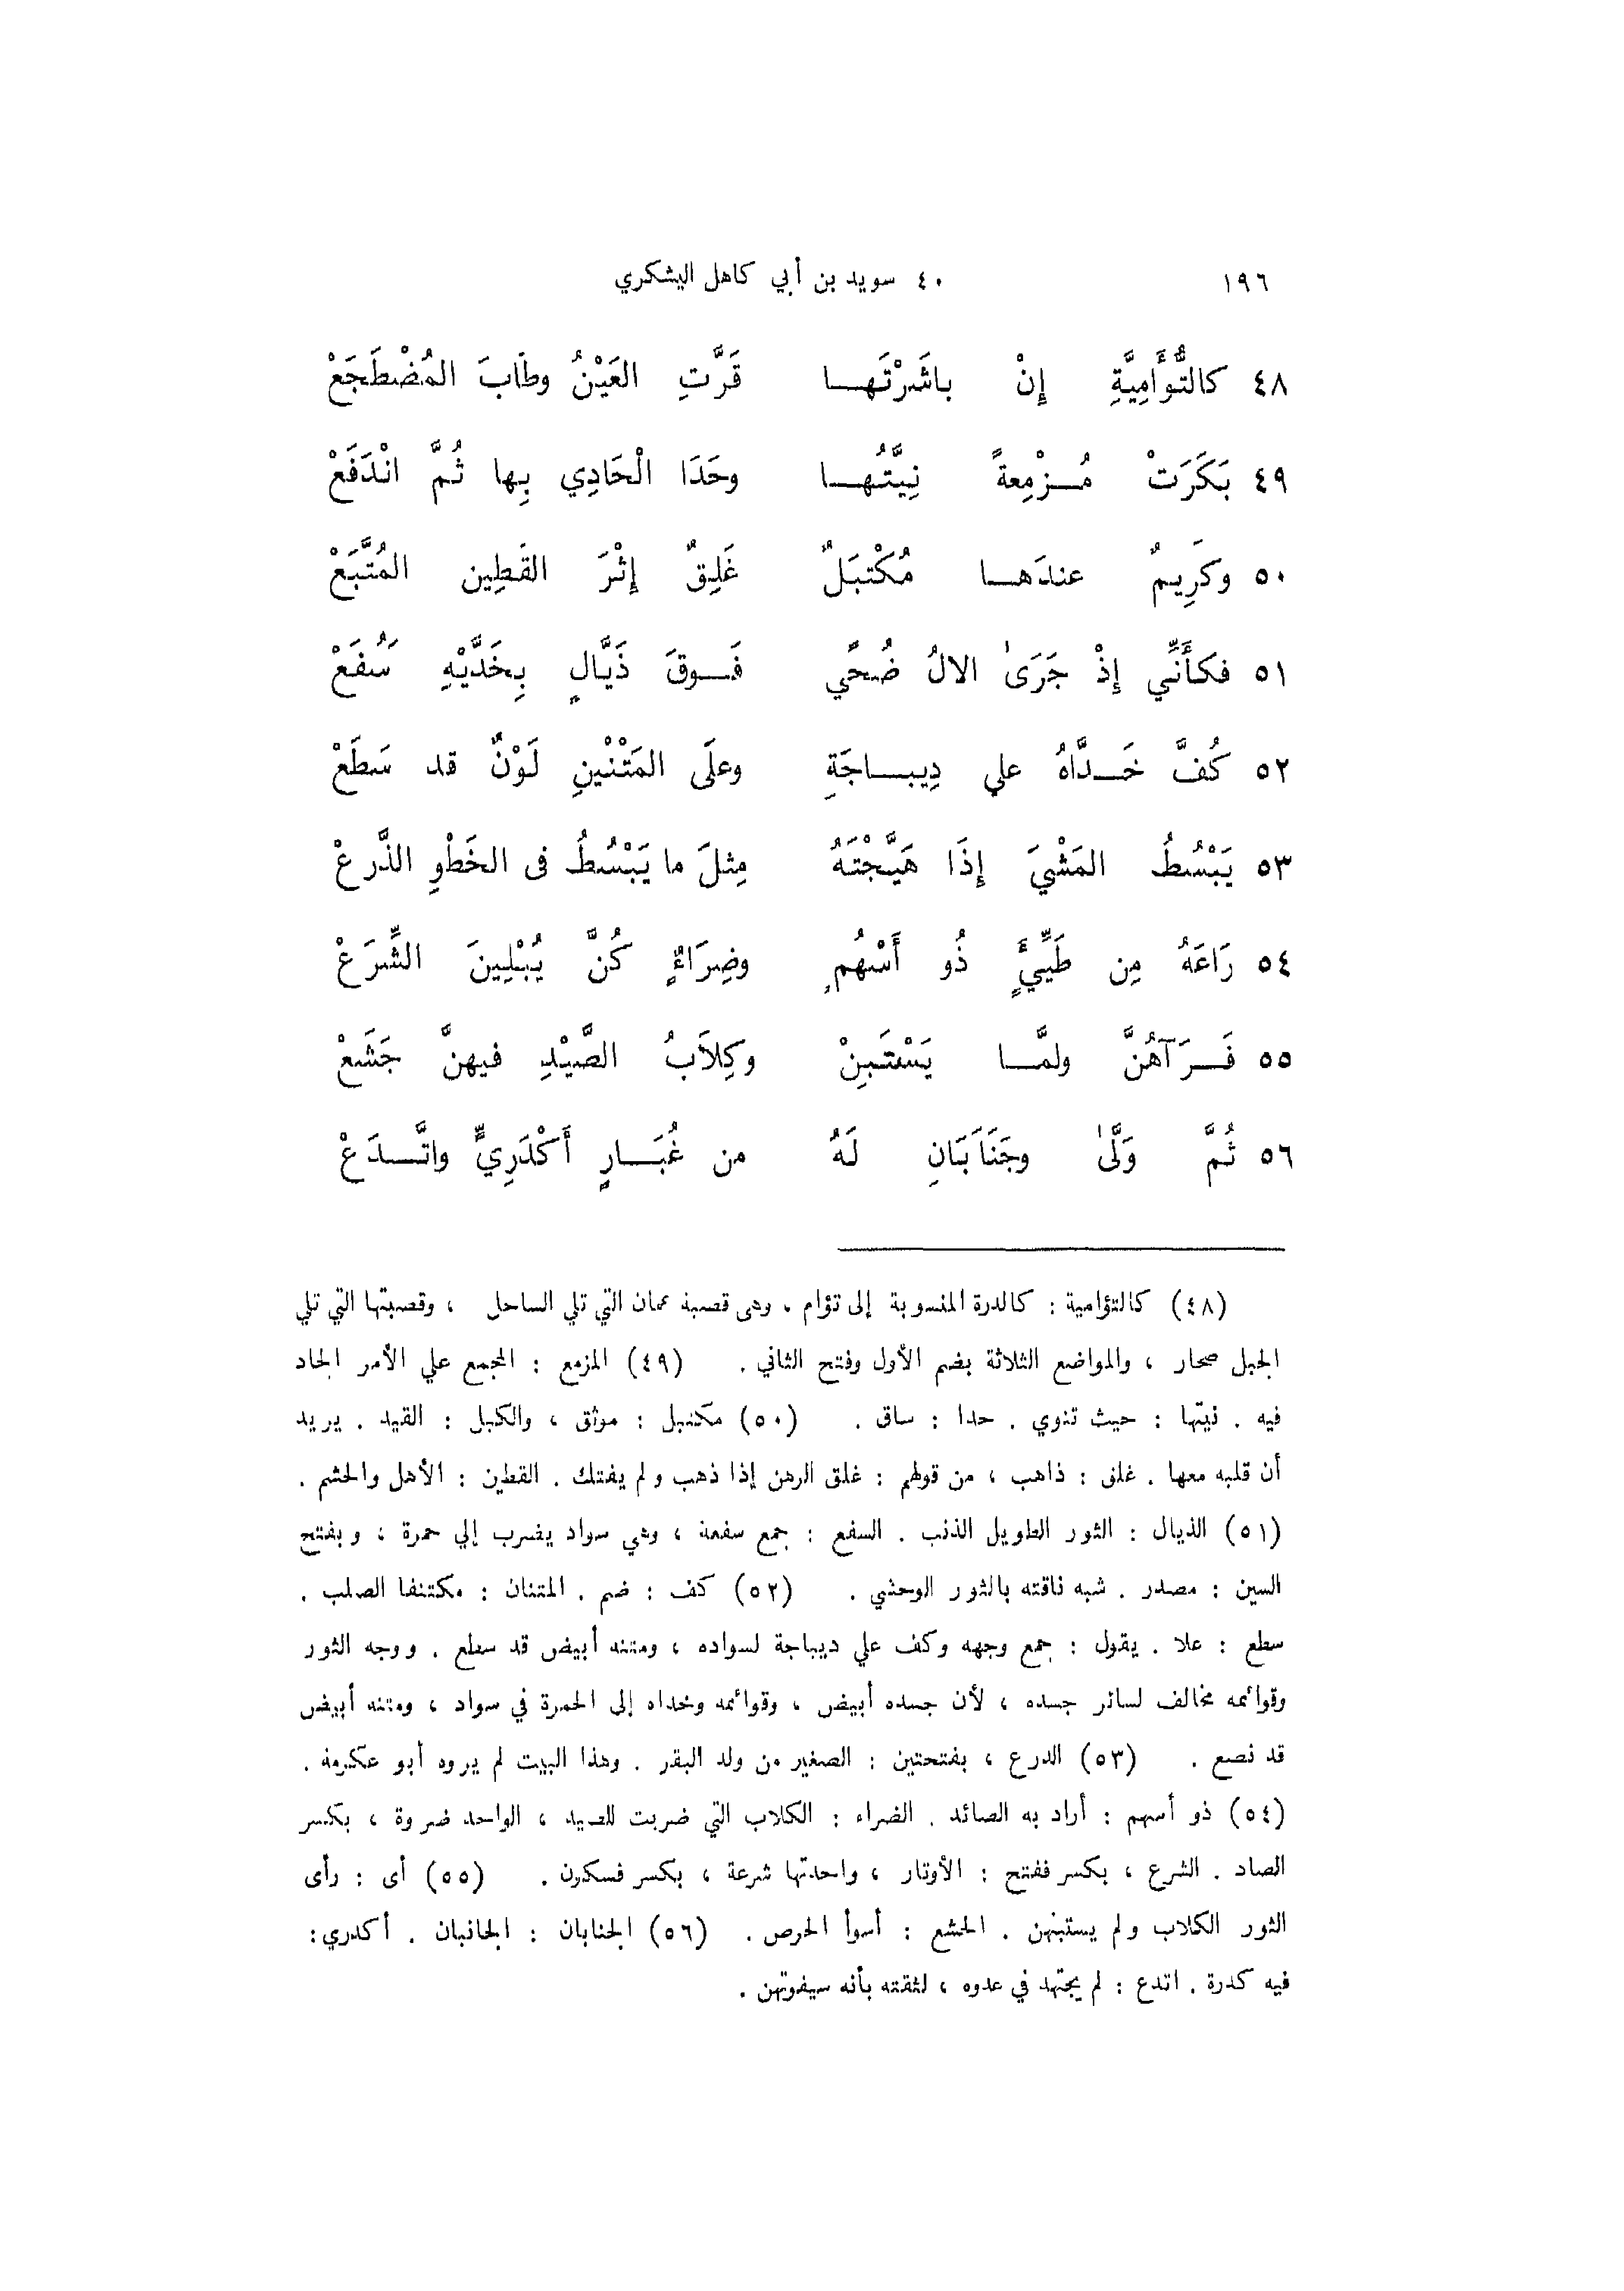 ١٩٦ ٤٠ سويد بن أبي كاهل اليشكري
٤٨ كالتُّؤَامِيَّةِ إِنْ باشَرْتَهـا قَرَّتِ العَيْنُ وطَابَ المُضْطَجَعْ
٤٩ بَكَرَتْ مُـزْمِعةً نِيَّتُهـا وحَدَا الْحَادِي بِها ثُمَّ انْدَفَعْ
٥٠ وكَرِيمٌ عندَهـا مُكْتبَلٌ غَلِقٌ إِثْرَ القَطِين المُتَّبَعْ
٥١ فكأَنِّي إِذْ جَرَىٰ الالُ ضُحًي فَـوقَ ذَيَّالٍ بِخَدَّيْهِ سُفَعْ
٥٢ كُفَّ خَـدَّاهُ علي دِيبـاجَةِ وعلَى المَتْنْينِ لَوْنٌ قد سَطَعْ
٥٣ يَبْسُطُ المَشْيَ إِذَا هَيَّجْتَهُ مِثلَ ما يَبْسُطُ فى الخَطْوِ الذَّرعْ
٥٤ رَاعَهُ مِن طَيِّيءٍ ذُو أَسْهُمٍ وضِرَاءٌ كُنَّ يُبْلِينَ الشِّرَعْ
٥٥ فَـرَآهُنَّ ولمَّـا يَسْتَبِنْ وكِلاَبُ الصَّيْدِ فيهنَّ جَشَعْ
٥٦ ثُمَّ وَلَّىٰ وجَنَابَانِ لَهُ من غُبَـارٍ أَكْدَرِيٍّ واتَّـدَعْ
(٤٨) كالتؤامية : كالدرة المنسوبة إلى تؤام ، وهى قصبة عمان التي تلي الساحل ، وقصبتها التي تلي
الجبل صحار ، والمواضع الثلاثة بضم الأول وفتح الثاني . (٤٩) المزمع : المجمع علي الأمر الجاد
فيه . نيتها : حيث تنوي . حدا : ساق . (٥٠) مكتبل : موثق ، والكبل : القيد . يريد
أن قلبه معها . غلق : ذاهب ، من قولهم : غلق الرهن إذا ذهب ولم يفتك . القطين : الأهل والحشم .
(٥١) الذيال : الثور الطويل الذنب . السفع : جمع سفعة ، وهي سواد يضرب إلي حمرة ، وبفتح
السين : مصدر . شبه ناقته بالثور الوحشي . (٥٢) كف : ضم . المتنان : مكتنفا الصلب .
سطع : علا . يقول : جمع وجهه وكف علي ديباجة لسواده ، ومتنه أبيض قد سطع . ووجه الثور
وقوائمه مخالف لسائر جسده ، لأن جسده أبيض ، وقوائمه وخداه إلى الحمرة في سواد ، ومتنه أبيض
قد نصع . (٥٣) الدرع ، بفتحتين : الصغير من ولد البقر . وهذا البيت لم يروه أبو عكرمة .
(٥٤) ذو أسهم : أراد به الصائد . الضراء : الكلاب التي ضربت للصيد ، الواحد ضروة ، بكسر
الصاد . الشرع ، بكسر ففتح : الأوتار ، واحدتها شرعة ، بكسر فسكون . (٥٥) أى : رأى
الثور الكلاب ولم يستبنهن . الحشع : أسوأ الحرص . (٥٦) الجنابان : الجانبان . أكدري :
فيه كدرة . اتدع : لم يجتهد في عدوه ، لثقته بأنه سيفوتهن .